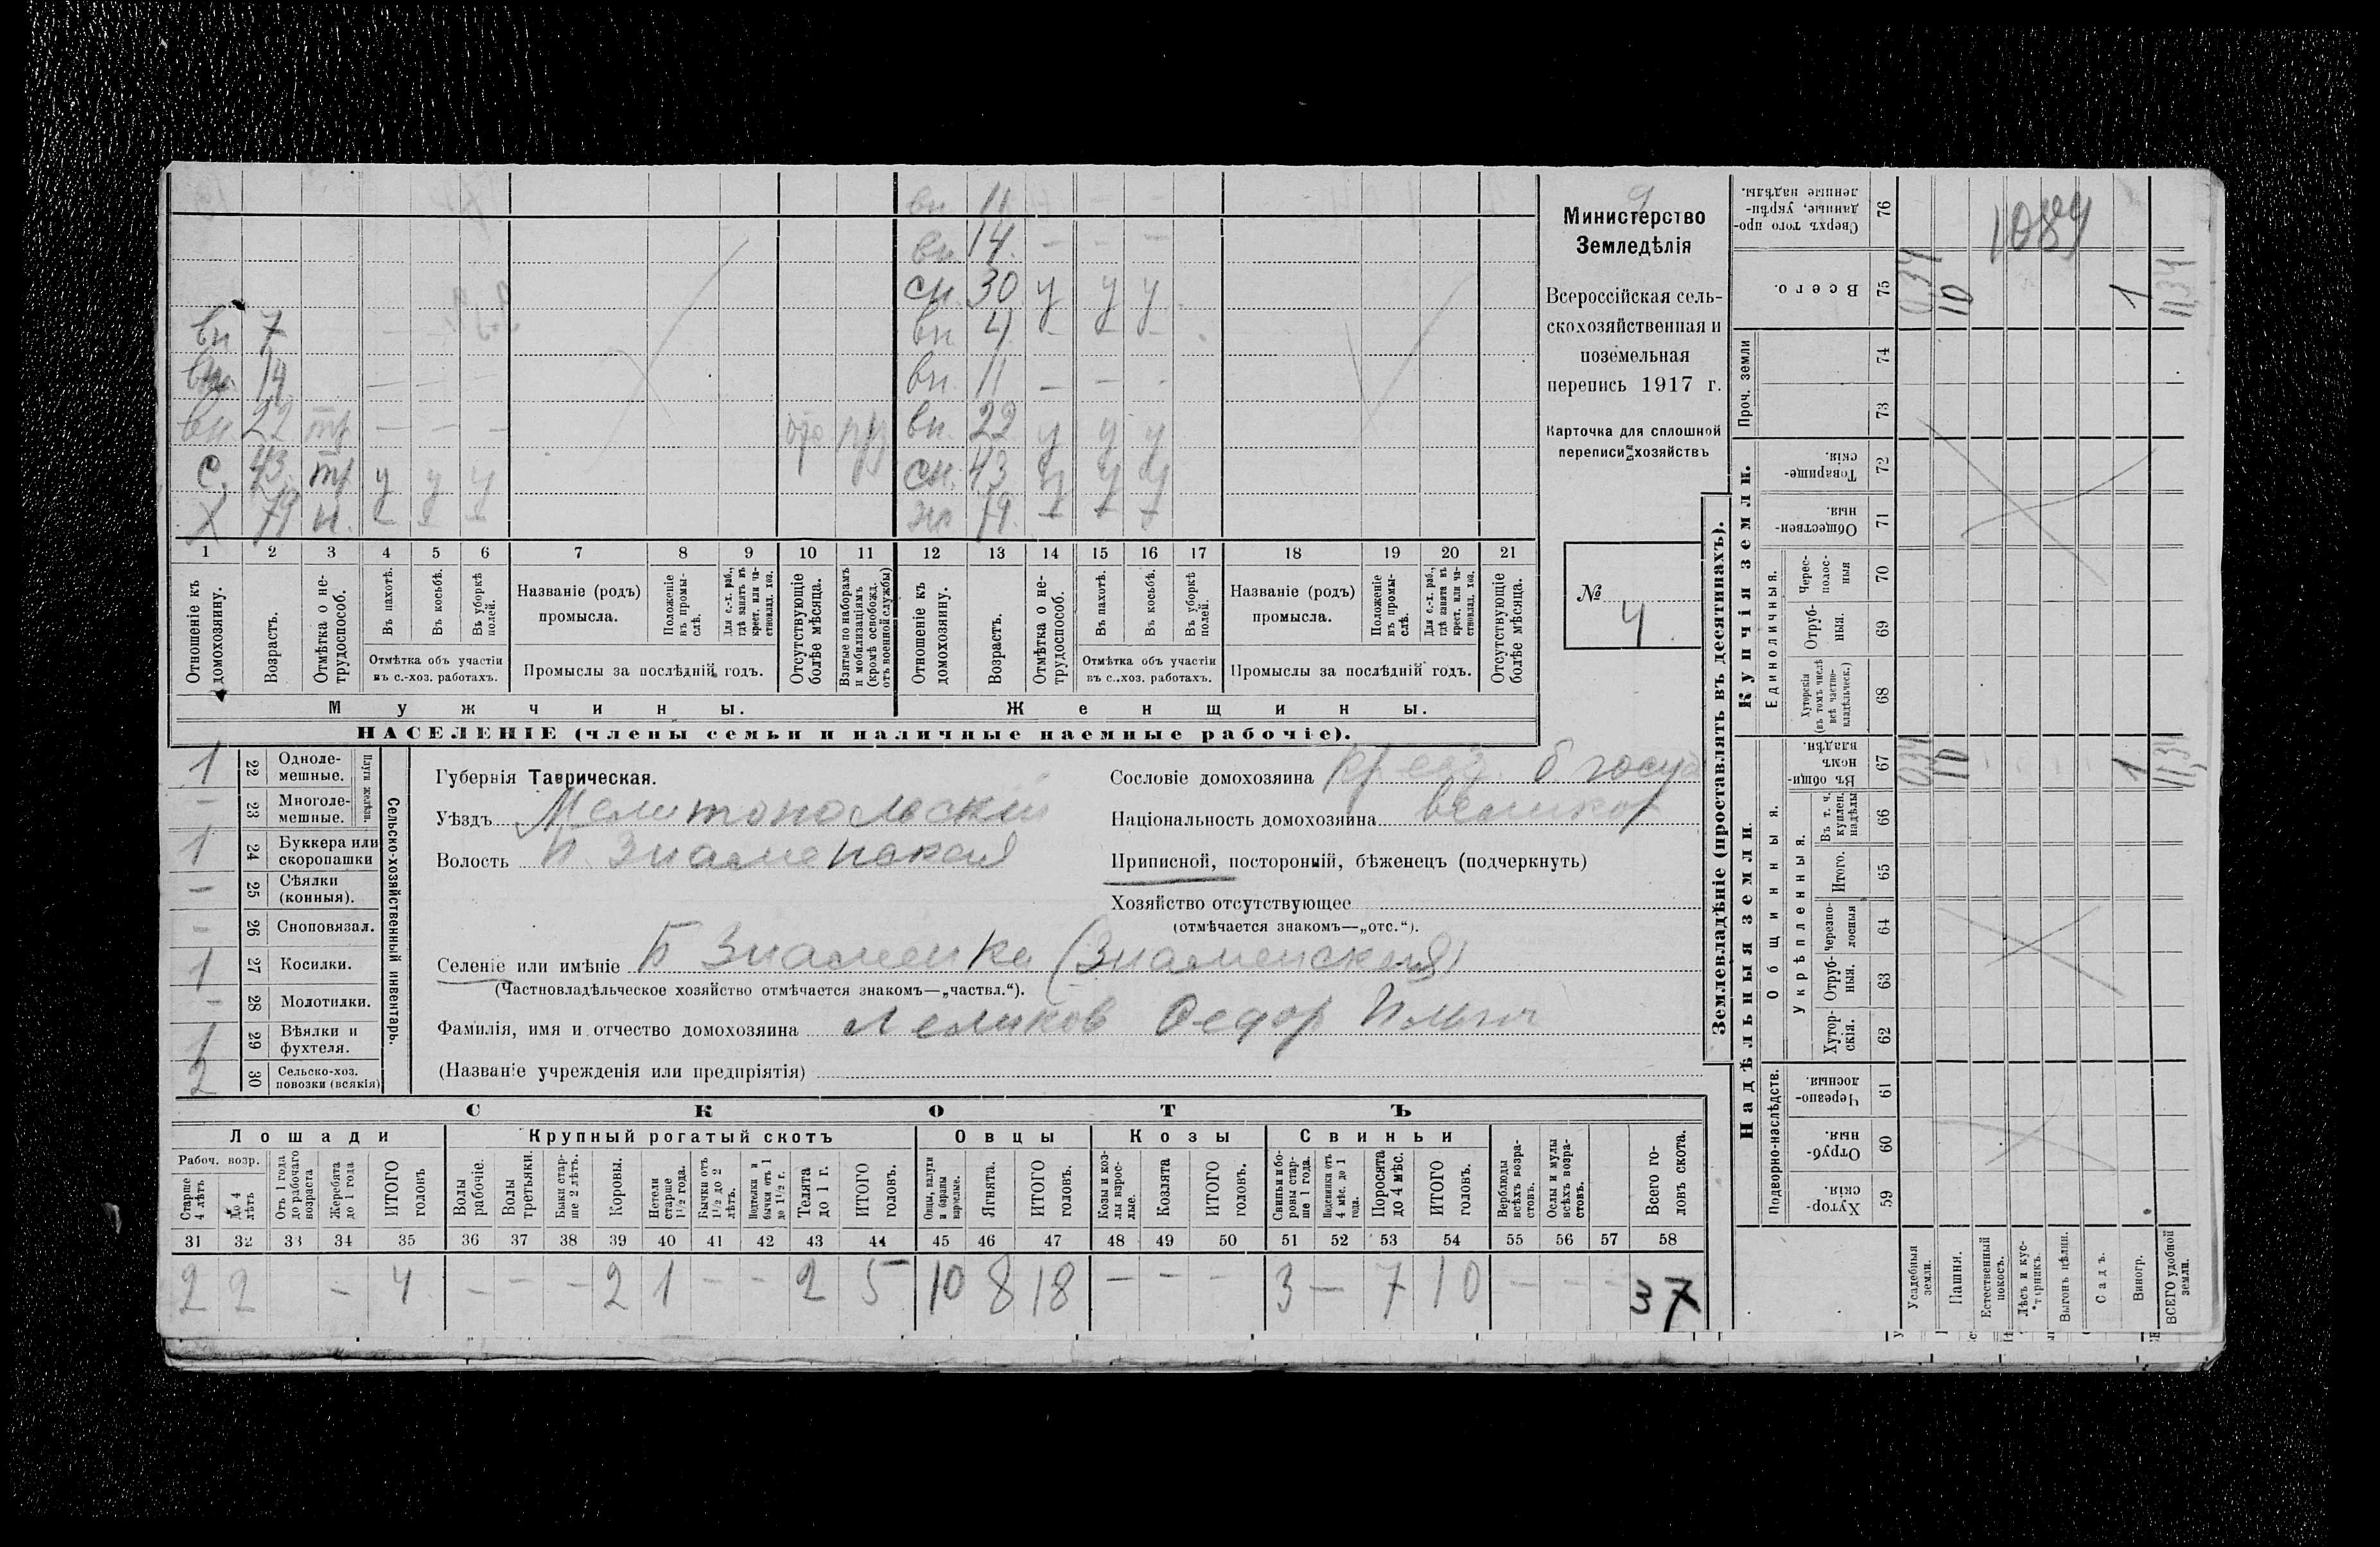 вн 11
вн. 14. — — —
сн. 30 у у у
вн 7 — — вн. 4 — — —
вн. 14 — — — вн. 11 — — —
вн. 22 тр — — — вн. 22 у у у
с. 43. тр у у у сн. 43 у у у
х 79 н. — — — 79. — — —
1 2 3 4 5 6 7 8 9 10 11 12 13 14 15 16 17 18 19 20 21
Отношеніе къ домохозяину.
Возрастъ.
Отмѣтка о нетрудоспособ.
Въ пахотѣ.
Въ косьбѣ.
Въ уборкѣ полей.
Отмѣтка объ участіи
въ с.-хоз. работахъ.
Названіе (родъ)
промысла.
Положеніе въ промыслѣ.
Для с.-х. раб., гдѣ занятъ въ крест. или частновлад. хоз.
Промыслы за послѣдній годъ.
Отсутствующіе болѣе мѣсяца.
Взятые по наборамъ и мобилизаціямъ (кромѣ освобожд. отъ военной службы)
Отношеніе къ домохозяину.
Возрастъ.
Отмѣтка о нетрудоспособ.
Въ пахотѣ.
Въ косьбѣ.
Въ уборкѣ полей.
Отмѣтка объ участіи
въ с.-хоз. работахъ.
Названіе (родъ)
промысла.
Положеніе въ промыслѣ.
Для с.-х. раб., гдѣ заняти въ крест. или частновлад. хоз.
Промыслы за послѣдній годъ.
Отсутствующіе болѣе мѣсяца.
Мужчины.
Женщины.
НАСЕЛЕНІЕ (члены семьи и наличные наемные рабочіе).
Министерство
Земледѣлія
Всероссійская сель-
скохозяйственная и
поземельная
перепись 1917 г.
Карточка для сплошной
переписи хозяйствъ
№ 4.
1 22 Одноле-мешные.
— 23 Многоле-мешные.
Плуги желѣзн.
1 24 Буккера или скоропашки
— 25 Сѣялки (конныя).
— 26 Сноповязал.
1 27 Косилки.
— 28 Молотилки.
1 29 Вѣялки и фухтеля.
2 30 Сельско-хоз. повозки (всякія)
Сельско-хозяйственный инвентарь.
Губернія Таврическая.
Уѣздъ Мелитопольскій
Волость Б. Знаменская
Сословіе домохозяина
Національность домохозяина великор
Приписной, посторонній, бѣженецъ (подчеркнуть)
Хозяйство отсутствующее
(отмѣчается знакомъ—„отс.“).
Селеніе или имѣніе Б Знаменка (Знаменская)
(Частновладѣльческое хозяйство отмѣчается знакомъ—„частвл.“).
Фамилія, имя и отчество домохозяина Леликов Федор Ильич
(Названіе учрежденія или предпріятія)
СКОТЪ
Лошади Крупный рогатый скотъ Овцы Козы Свиньи
Рабоч. возр.
Старше 4 лѣтъ
До 4 лѣтъ
Отъ 1 года до рабочаго возраста
Жеребята до 1 года
ИТОГО головъ
Волы рабочіе.
Волы третьяки.
Быки старше 2 лѣтъ.
Коровы.
Нетели старше 1½ года.
Бычки отъ 1½ до 2 лѣтъ.
Подтелки и бычки отъ 1 до 1½ г.
Телята до 1 г.
ИТОГО головъ.
Овцы, валухи и бараны взрослые.
Ягнята.
ИТОГО головъ.
Козы и козлы взрослые.
Козлята
ИТОГО головъ.
Свиньи и боровы старше 1 года.
Подсвинки отъ 4 мѣс. до 1 года.
Поросята до 4 мѣс.
ИТОГО головъ.
Верблюды всѣхъ возрастовъ.
Ослы и мулы всѣхъ возрастовъ.
Всего головъ скота.
31 32 33 34 35 36 37 38 39 40 41 42 43 44 45 46 47 48 49 50 51 52 53 54 55 56 57 58
2 2 — 4 — — — 2 1 — — 2 5 10 8 18 — — — 3 — 7 10 — — — 37
Землевладѣніе (проставлять въ десятинахъ).
Надѣльныя земли.
Купчія земли.
Подворно-наслѣдств.
Общинныя.
Укрѣпленныя.
Единоличныя.
Проч. земли
Сверхъ того проданные, укрѣпленные надѣлы. 76
Всего. 75
74
73
Товарищескія. 72
Общественныя. 71
Чрес-полосныя 70
Отрубныя. 69
Хуторскія (въ томъ числѣ всѣ частновладѣльческ.) 68
Въ общин. владѣн. 67
Въ т. ч. куплен. надѣлы 66
Итого. 65
Черезполосныя 64
Отрубныя. 63
Хуторскія. 62
Черезполосныя. 61
Отрубныя. 60
Хуторскія. 59
1089
0,34 10 1 11,34
0,34 10 1 11,34
Усадебныя земли.
Пашня.
Естественный покосъ.
Лѣсъ и кустарникъ.
Выгонъ цѣлин.
Садъ.
Виногр.
ВСЕГО удобной земли.